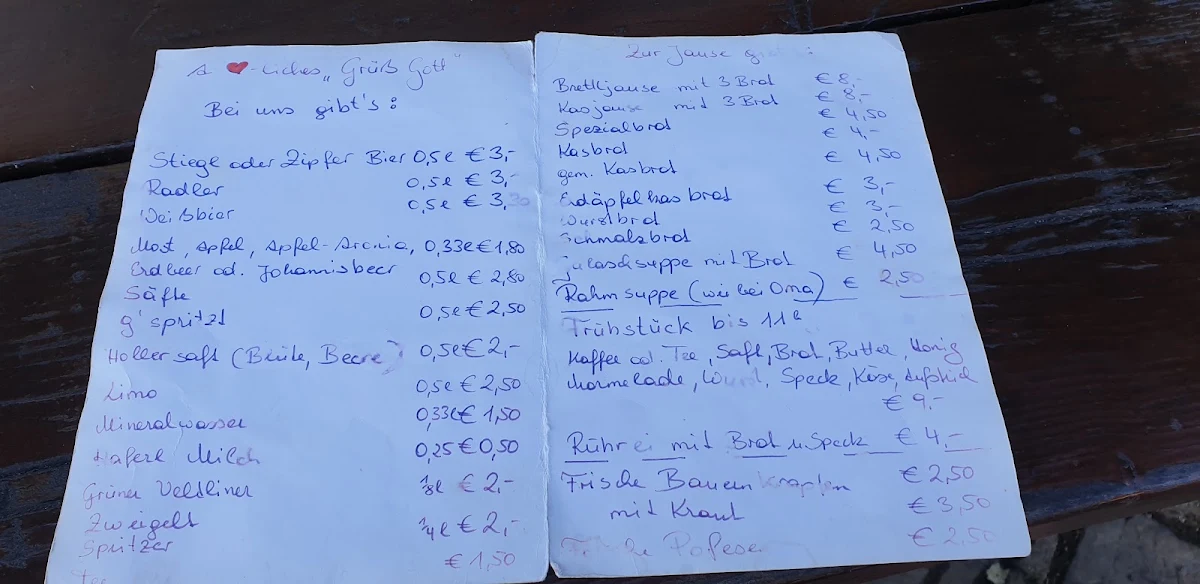 A ❤-liches „Grüß Gott"
Bei uns gibt's:
Stiegl oder Zipfer Bier 0,5l € 3,-
Radler 0,5l € 3,-
Weißbier 0,5l € 3,30
Most, Apfel, Apfel-Aronia, 0,33l € 1,80
Erdbeer od. Johannisbeer
Säfte 0,5l € 2,80
g'spritzt 0,5l € 2,50
Hollersaft (Blüte, Beere) 0,5l € 2,-
Limo 0,5l € 2,50
Mineralwasser 0,33l € 1,50
Haferl Milch 0,25 € 0,50
Grüner Veltliner 1/8l € 2,-
Zweigelt 1/4l € 2,-
Spritzer € 1,50
Tee
Zur Jause
Brettljause mit 3 Brot € 8,-
Kasjause mit 3 Brot € 8,-
Spezialbrot € 4,50
Kasbrot € 4,-
gem. Kasbrot € 4,50
Erdäpfelkasbrot € 3,-
Wurstbrot € 3,-
Schmalzbrot € 2,50
Gulaschsuppe mit Brot € 4,50
Rahmsuppe (wie bei Oma) € 2,50
Frühstück bis 11h
Kaffee od. Tee, Saft, Brot, Butter, Honig
Marmelade, Wurst, Speck, Käse, Aufstrich
€ 9,-
Rührei mit Brot u Speck € 4,-
Frische Bauernkrapfen € 2,50
mit Kraut € 3,50
Frische Pofesen € 2,50